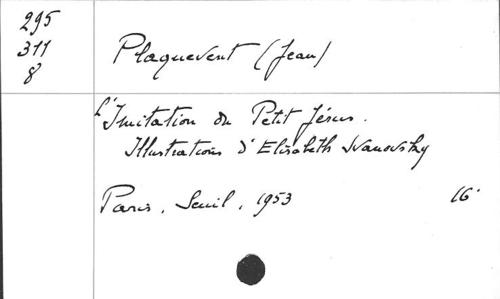 295
311
8
Plaquevent (Jean)
L'Imitation du Petit Jésus.
Illustrations d'Elisabeth Ivanovsky
Paris, Seuil, 1953 16°